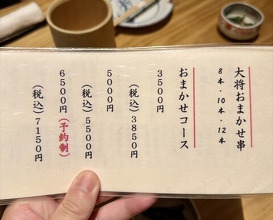 大将おまかせ串
8本・10本・12本
おまかせコース
3500円
(税込) 3850円
5000円
(税込) 5500円
6500円 (予約制)
(税込) 7150円